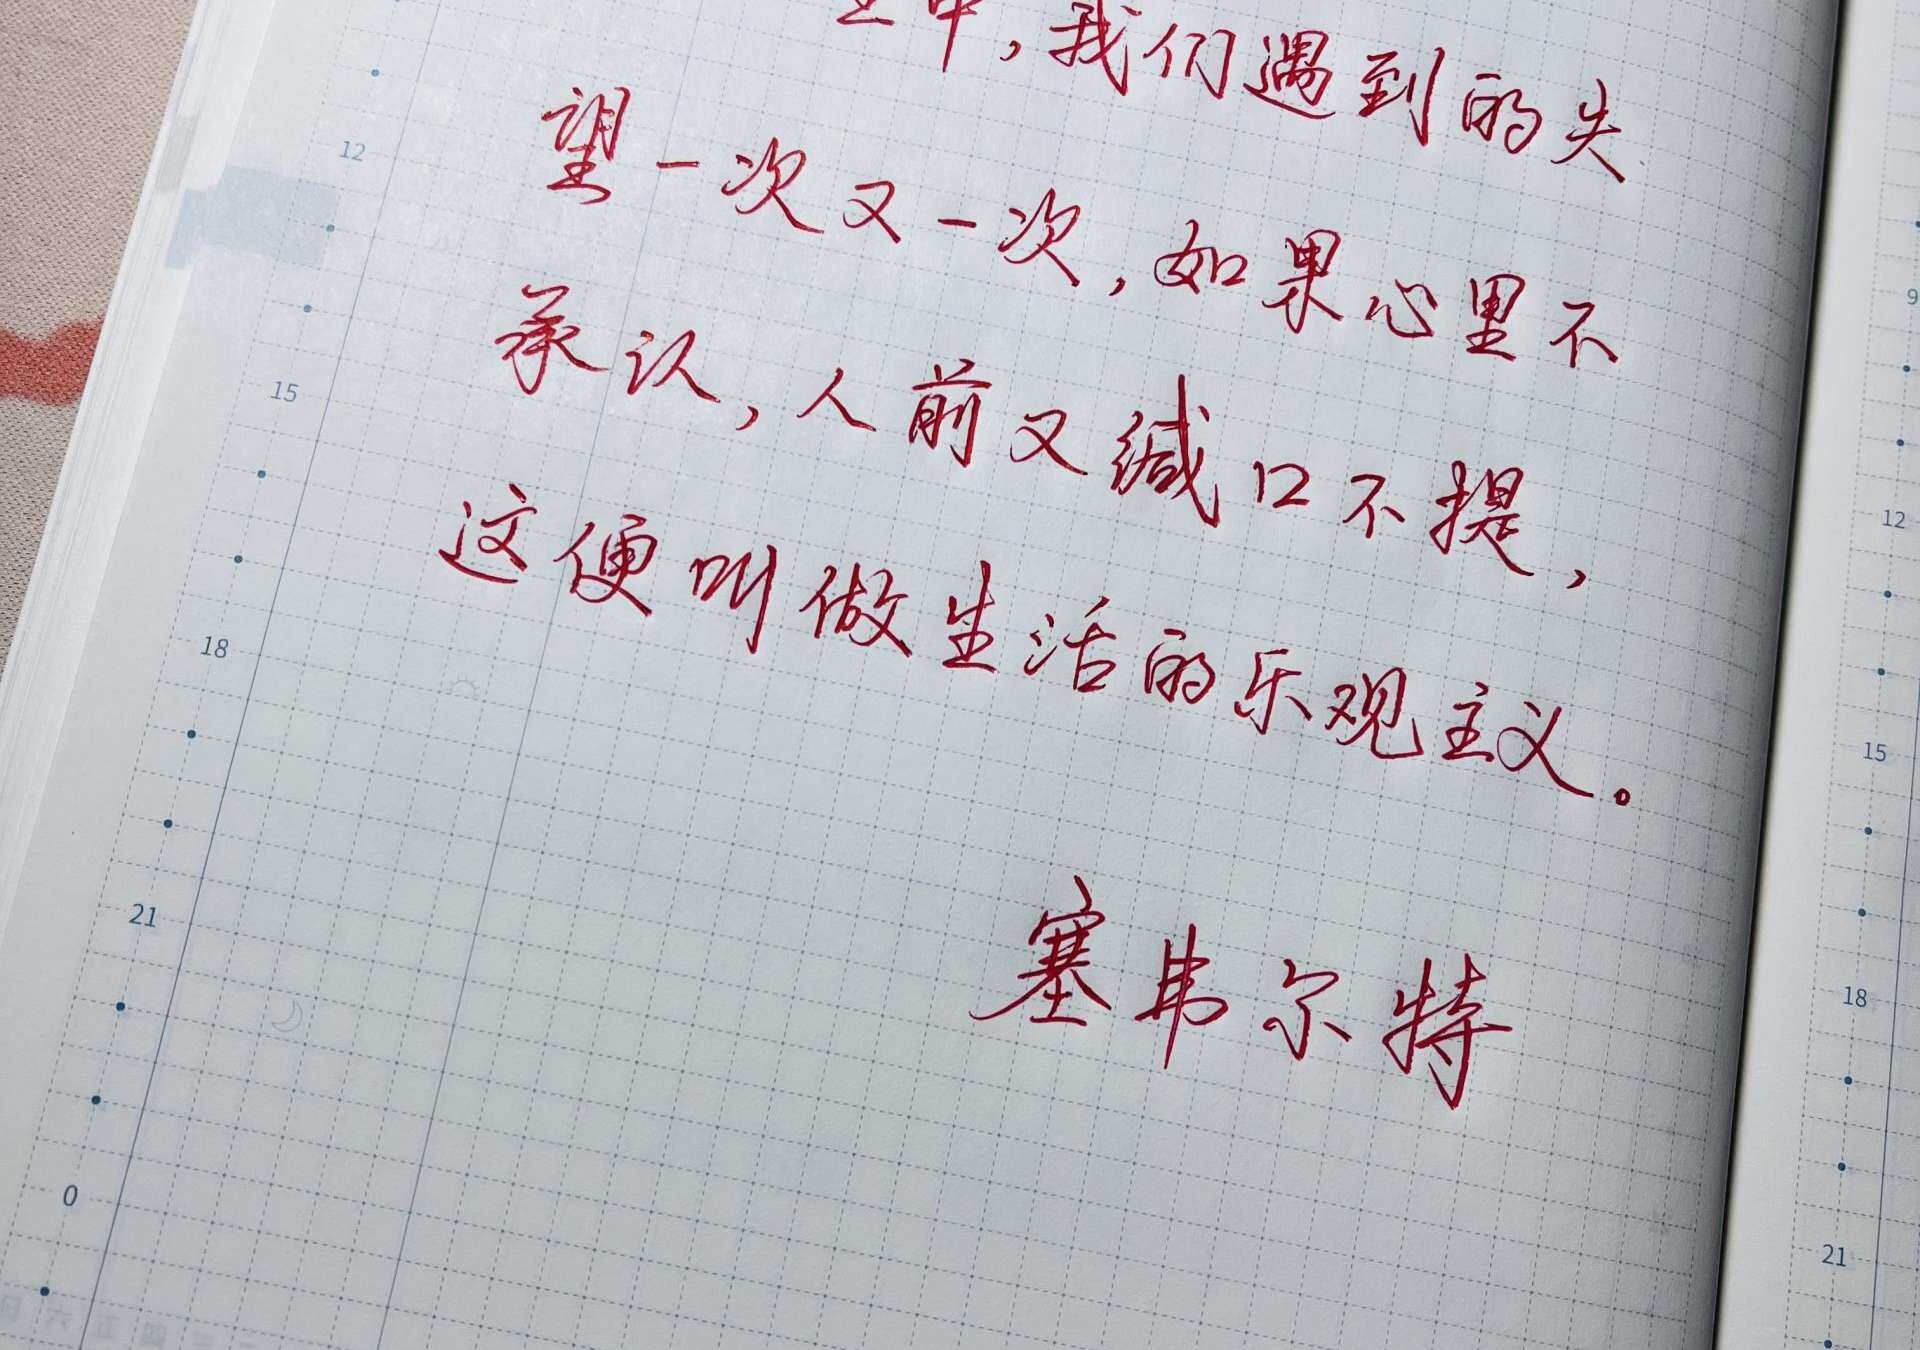 生中，我们遇到的失
望一次又一次，如果心里不
承认，人前又缄口不提，
这便叫做生活的乐观主义。
塞韦尔特
12
15
18
21
0
9
12
15
18
21